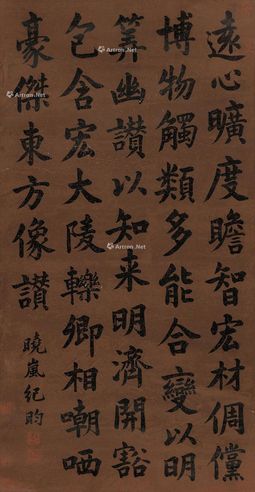 遠心曠度瞻智宏材倜儻
博物觸類多能合變以明
筭幽讚以知来明濟開豁
包含宏大陵轢卿相嘲哂
豪傑東方像讚
曉嵐紀昀
Artron.Net
Artron.Net
Artron.Net